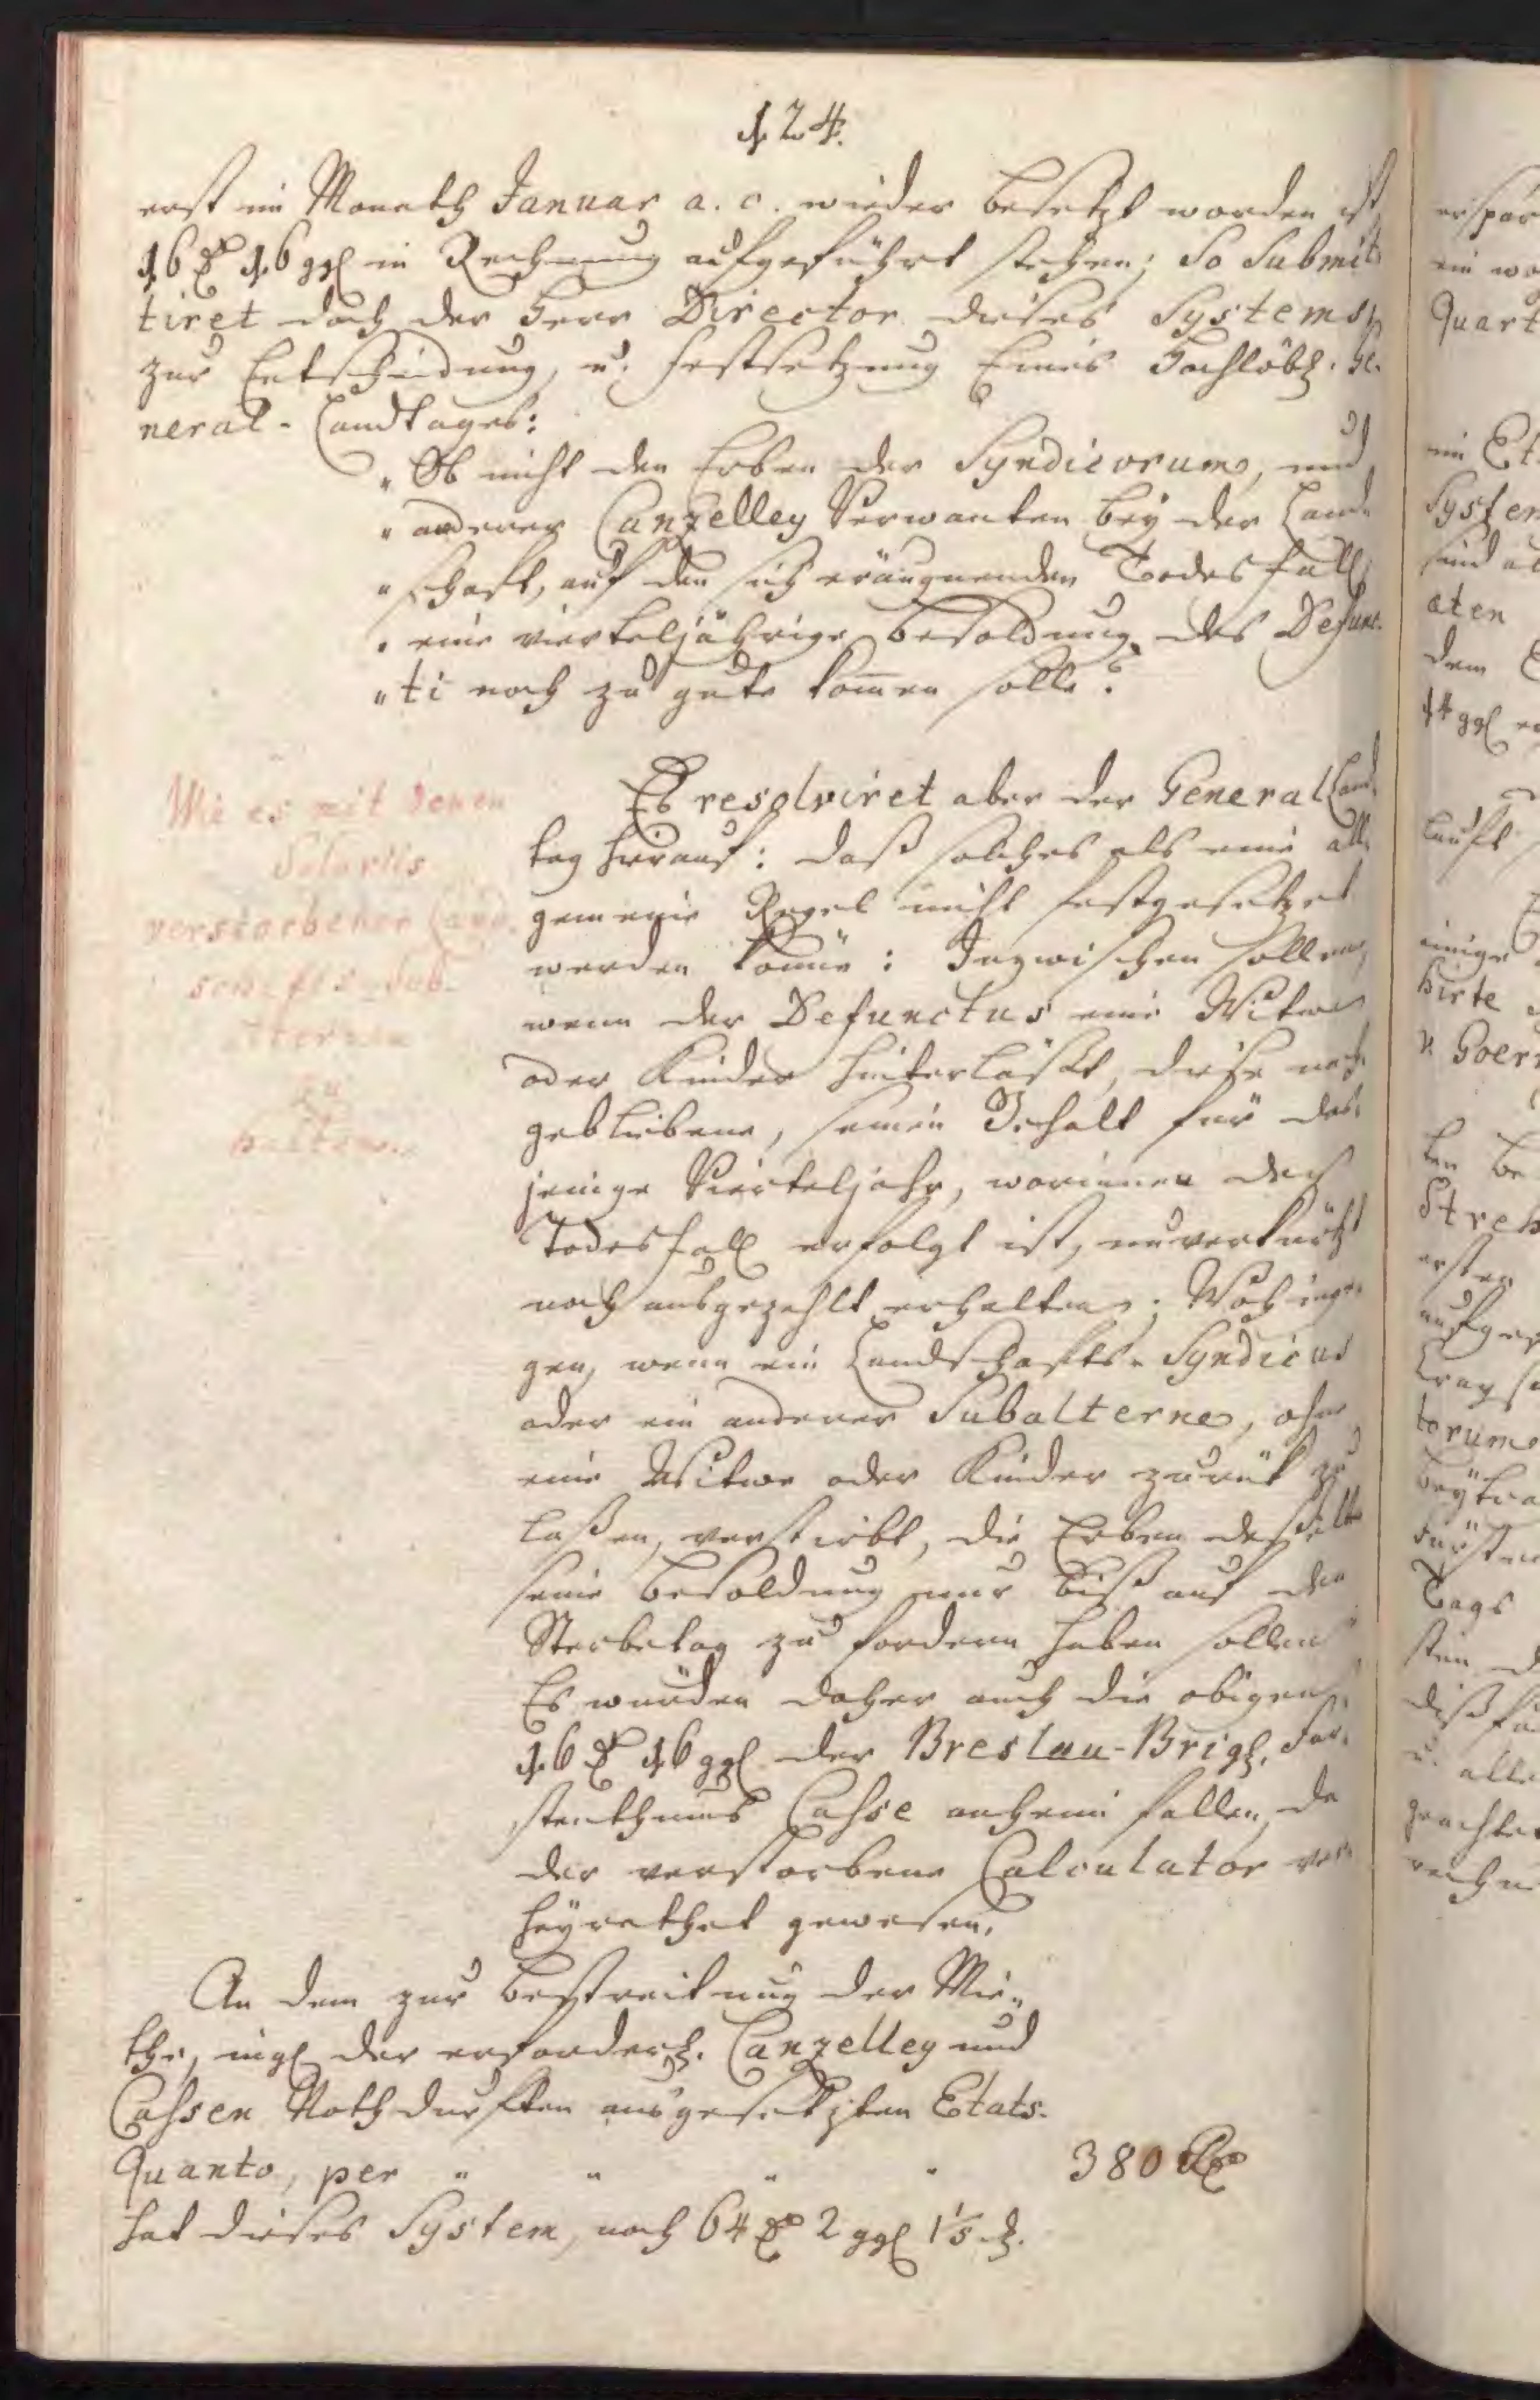 124.
erst im Monath Januar a. c. wieder besetzt worden ist,
16 rthl 16 ggl in Rechnung aufgeführt stehen; So Submit-
tiret doch der Herr Director dieses Systems,
zur Entscheidung, u. Festsetzung Eines Hochlöbl. Ge-
neral-Landtages:
„Ob nicht den Erben der Syndicorum, und
„anderer Canzelley Verwanten bey der Land-
„schaft, auf den sich eräugnenden Todesfall,
„eine vierteljährige Besoldung des Defunc-
„ti noch zu gute kommen solle?
Wie es mit denen
Salariis
verstorbener Land-
schafts-Sub-
alternen
zu
halten.
Es resolviret aber der General Land-
tag hierauf: daß solches als eine all-
gemeine Regel nicht festgesetzet
werden könne: Inzwischen sollen,
wenn der Defunctus eine Witwe
oder Kinder hinterläßt, diese nach-
gebliebene, seinen Gehalt für das-
jenige Vierteljahr, worinnen der
Todesfall erfolgt ist, unverkürtzt
noch ausgezahlt erhalten; Wohinge-
gen, wenn ein Landschafts-Syndicus
oder ein anderer Subalterne, ohne
eine Witwe oder Kinder zurük zu
laßen, verstirbt, die Erben deßelben
seine Besoldung nur biß auf den
Sterbetag zu fordern haben sollen.
Es würden daher auch die obigen
16 rthl 16 ggl der Breslau-Brigl. Für-
stenthums Casse anheim fallen, da
der verstorbene Calculator ver-
heyrathet gewesen.
An dem zur Bestreitung der Mie-
the, ingl der erforderl. Canzelley und
Cassen Nothdurften ausgesetzten Etats-
Quanto, per „ „ „ „ 380 Rthl
hat dieses System, noch 64 rthl 2 ggl 1 1/5 d.